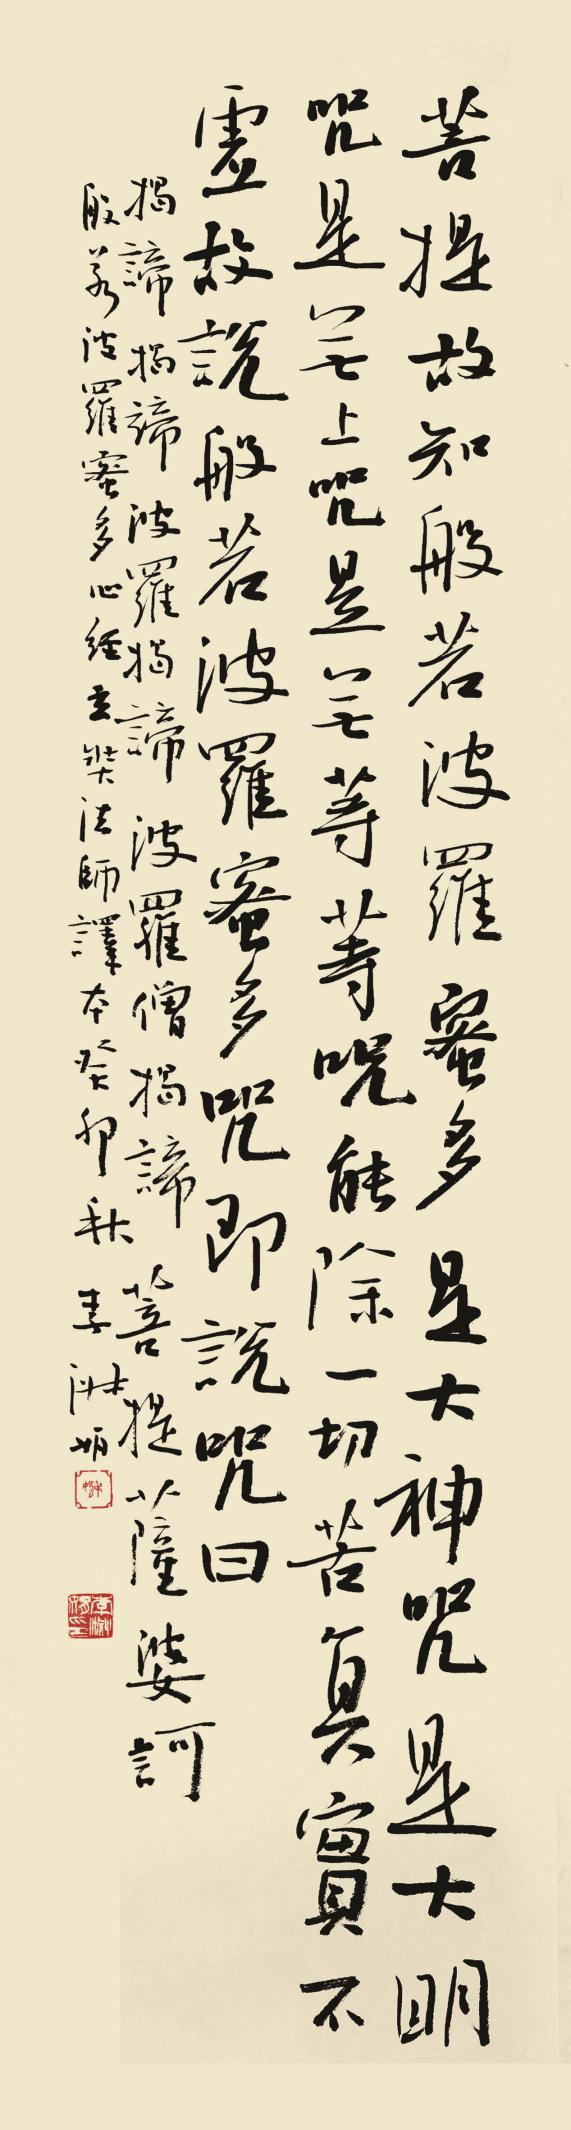 菩提故知般若波羅蜜多是大神咒是大明
咒是无上咒是无等等咒能除一切苦真實不
虛故說般若波羅蜜多咒即說咒曰
揭諦揭諦波羅揭諦波羅僧揭諦菩提薩婆訶
般若波羅蜜多心經玄奘法師譯本癸卯秋李淋炳